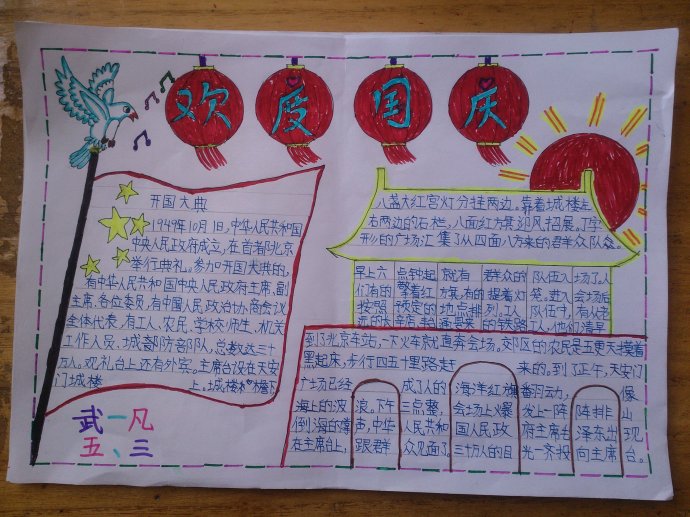 欢度国庆
开国大典
1949年10月1日,中华人民共和国
中央人民政府成立,在首都北京
举行典礼。参加开国大典的,
有中华人民共和国中央人民政府主席,副
主席,各位委员,有中国人民政治协商会议
全体代表,有工人,农民,学校师生,机关
工作人员,城部防部队。总数达三十
万人。观礼台上还有外宾。主席台设在天安
门城楼上。城楼檐下
武一凡
五、三
八盏大红宫灯分挂两边。靠着城楼左
右两边的石栏,八面红方旗迎风招展。丁字
形的广场汇集了从四面八方来的群众队众。
早上六点钟起就有群众的队伍入场了。人
们有的擎着红旗,有的提着灯笼。进入会场后
按照预定的地点排列。工人队伍中,有从老
远的
来的铁路工人,他们清早
到了北京车站,一下火车就直奔会场。郊区的农民是五更天摸着
黑起床,步行四五十里路赶来的。到了正午,天安门
广场已经成了人的海洋红旗翻动,像
海上的波浪。下午三点整,会场上爆发出一阵阵排山
倒海的掌声,中华人民共和国人民政府主席毛泽东出现
在主席台上,跟群众见面了。三十万人的目光一齐投向主席台。